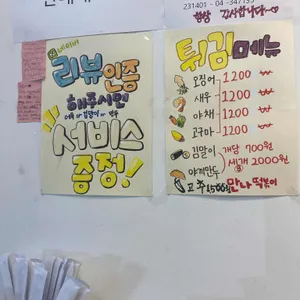 231401 - 04 - 347153
항상 감사합니다~
네이버
리뷰 인증
해주시면
서비스
증정!
튀김 메뉴
오징어 1200 ₩
새우 1200 ₩
야채 1200 ₩
고구마 1200 ₩
김말이
야끼만두
개당 700원
세개 2000원
고추 1,500원
만나떡볶이